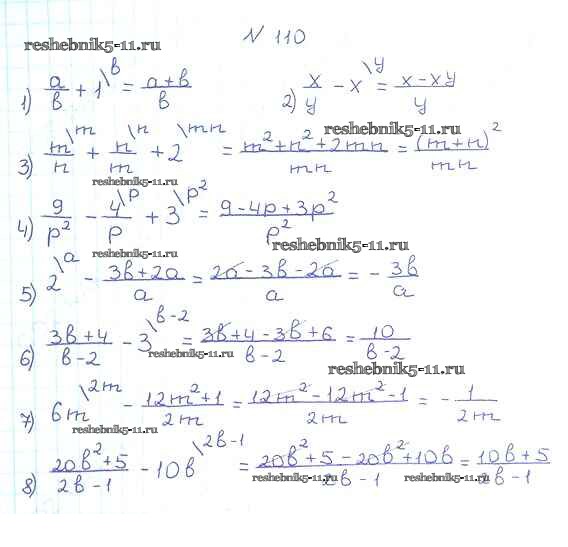 N 110
reshebnik5-11.ru
1) a/b + 1\b = (a+b)/b 2) x/y - x\y = (x-xy)/y
reshebnik5-11.ru
3) m/n\m + n/m\n + 2\mn = (m²+n²+2mn)/mn = (m+n)²/mn
reshebnik5-11.ru
4) 9/p² - 4/p\p + 3\p² = (9-4p+3p²)/p²
reshebnik5-11.ru
5) 2\a - (3b+2a)/a = (2a-3b-2a)/a = -3b/a
6) (3b+4)/(b-2) - 3\b-2 = (3b+4-3b+6)/(b-2) = 10/(b-2)
reshebnik5-11.ru
reshebnik5-11.ru
7) 6m\2m - (12m²+1)/2m = (12m²-12m²-1)/2m = -1/2m
reshebnik5-11.ru
8) (20b²+5)/(2b-1) - 10b\2b-1 = (20b²+5-20b²+10b)/(2b-1) = (10b+5)/(2b-1)
reshebnik5-11.ru reshebnik5-11.ru